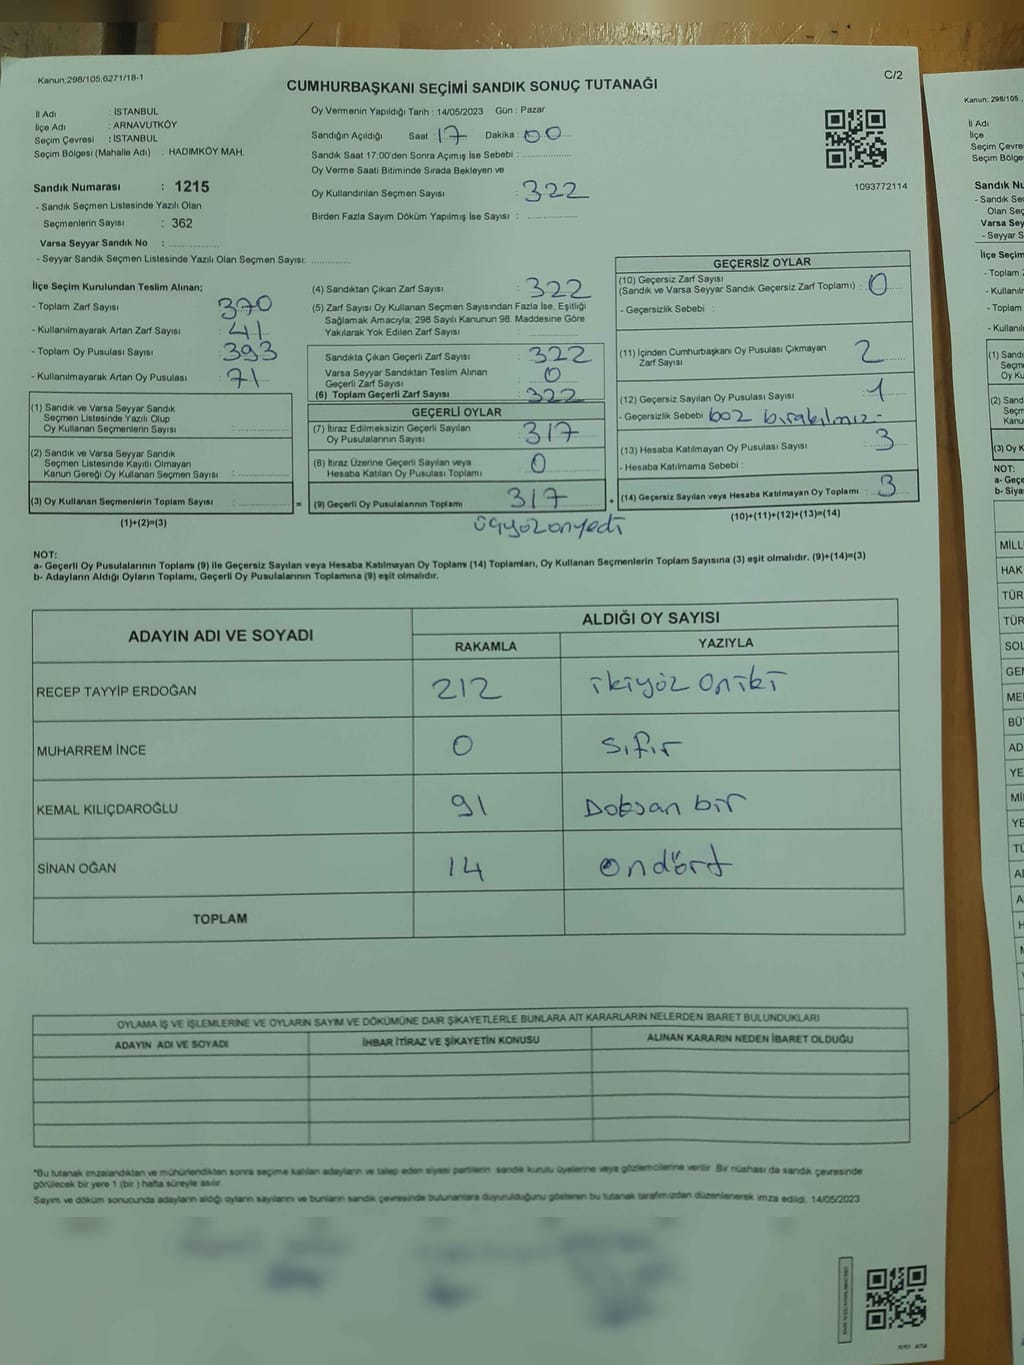 Kanun;298/105,6271/18-1
C/2
CUMHURBAŞKANI SEÇİMİ SANDIK SONUÇ TUTANAĞI
İl Adı : İSTANBUL
İlçe Adı : ARNAVUTKÖY
Seçim Çevresi : İSTANBUL
Seçim Bölgesi (Mahalle Adı) : HADIMKÖY MAH.
Sandık Numarası : 1215
- Sandık Seçmen Listesinde Yazılı Olan
Seçmenlerin Sayısı : 362
Varsa Seyyar Sandık No : ..................
- Seyyar Sandık Seçmen Listesinde Yazılı Olan Seçmen Sayısı: ..............
Oy Vermenin Yapıldığı Tarih : 14/05/2023 Gün : Pazar
Sandığın Açıldığı Saat : 17 Dakika : 00
Sandık Saat 17:00'den Sonra Açımış İse Sebebi : ..................
Oy Verme Saati Bitiminde Sırada Bekleyen ve
Oy Kullandırılan Seçmen Sayısı : 322
Birden Fazla Sayım Döküm Yapılmış İse Sayısı : ..................
1093772114
İlçe Seçim Kurulundan Teslim Alınan;
- Toplam Zarf Sayısı : 370
- Kullanılmayarak Artan Zarf Sayısı : 41
- Toplam Oy Pusulası Sayısı : 393
- Kullanılmayarak Artan Oy Pusulası : 71
(1) Sandık ve Varsa Seyyar Sandık
Seçmen Listesinde Yazılı Olup
Oy Kullanan Seçmenlerin Sayısı : ..................
(2) Sandık ve Varsa Seyyar Sandık
Seçmen Listesinde Kayıtlı Olmayan
Kanun Gereği Oy Kullanan Seçmen Sayısı : ..................
(3) Oy Kullanan Seçmenlerin Toplam Sayısı : ..................
(1)+(2)=(3)
=
(4) Sandıktan Çıkan Zarf Sayısı : 322
(5) Zarf Sayısı Oy Kullanan Seçmen Sayısından Fazla İse, Eşitliği
Sağlamak Amacıyla; 298 Sayılı Kanunun 98. Maddesine Göre
Yakılarak Yok Edilen Zarf Sayısı : ..................
Sandıkta Çıkan Geçerli Zarf Sayısı : 322
Varsa Seyyar Sandıktan Teslim Alınan
Geçerli Zarf Sayısı : 0
(6) Toplam Geçerli Zarf Sayısı : 322
GEÇERLİ OYLAR
(7) İtiraz Edilmeksizin Geçerli Sayılan
Oy Pusulalarının Sayısı : 317
(8) İtiraz Üzerine Geçerli Sayılan veya
Hesaba Katılan Oy Pusulası Toplamı : 0
(9) Geçerli Oy Pusulalarının Toplamı : 317
üçyüzonyedi
+
GEÇERSİZ OYLAR
(10) Geçersiz Zarf Sayısı
(Sandık ve Varsa Seyyar Sandık Geçersiz Zarf Toplamı) : 0
- Geçersizlik Sebebi :
(11) İçinden Cumhurbaşkanı Oy Pusulası Çıkmayan
Zarf Sayısı : 2
(12) Geçersiz Sayılan Oy Pusulası Sayısı : 1
- Geçersizlik Sebebi : boz bırakılmız.
(13) Hesaba Katılmayan Oy Pusulası Sayısı : 3
- Hesaba Katılmama Sebebi :
(14) Geçersiz Sayılan veya Hesaba Katılmayan Oy Toplamı : 3
(10)+(11)+(12)+(13)=(14)
NOT:
a- Geçerli Oy Pusulalarının Toplamı (9) ile Geçersiz Sayılan veya Hesaba Katılmayan Oy Toplamı (14) Toplamları, Oy Kullanan Seçmenlerin Toplam Sayısına (3) eşit olmalıdır. (9)+(14)=(3)
b- Adayların Aldığı Oyların Toplamı, Geçerli Oy Pusulalarının Toplamına (9) eşit olmalıdır.
ADAYIN ADI VE SOYADI
ALDIĞI OY SAYISI
RAKAMLA YAZIYLA
RECEP TAYYİP ERDOĞAN 212 ikiyüz oniki
MUHARREM İNCE 0 sıfır
KEMAL KILIÇDAROĞLU 91 Doksan bir
SİNAN OĞAN 14 ondört
TOPLAM
OYLAMA İŞ VE İŞLEMLERİNE VE OYLARIN SAYIM VE DÖKÜMÜNE DAİR ŞİKAYETLERLE BUNLARA AİT KARARLARIN NELERDEN İBARET BULUNDUKLARI
ADAYIN ADI VE SOYADI İHBAR İTİRAZ VE ŞİKAYETİN KONUSU ALINAN KARARIN NEDEN İBARET OLDUĞU
*Bu tutanak imzalandıktan ve mühürlendikten sonra seçime katılan adayların ve talep eden siyasi partilerin sandık kurulu üyelerine veya gözlemcilerine verilir. Bir nüshası da sandık çevresinde
görülecek bir yere 1 (bir ) hafta süreyle asılır.
Sayım ve döküm sonucunda adayların aldığı oyların sayılarını ve bunların sandık çevresinde bulunanlara duyurulduğunu gösteren bu tutanak tarafımızdan düzenlenerek imza edildi. 14/05/2023
Kanun: 298/105 ,
İl Adı
İlçe
Seçim Çevre
Seçim Bölge
Sandık Nu
- Sandık Se
Olan Seç
Varsa Sey
- Seyyar S
İlçe Seçim
- Toplam Z
- Kullanılm
- Toplam
- Kullanılı
(1) Sand
Seçm
Oy Ku
(2) Sand
Seçm
Kanu
(3) Oy K
NOT:
a- Geçe
b- Siyas
MİLL
HAK
TÜR
TÜR
SOL
GEN
ME
BÜ
AD
YE
Mİ
YE
TÜ